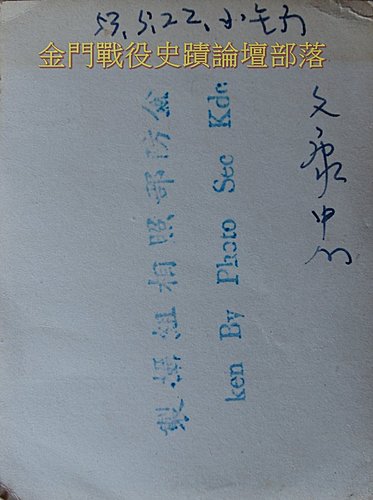 53.5.22.小金門
金門戰役史蹟論壇部落
文康中心
金防部照相組攝製
ken By Photo Sec Kdc